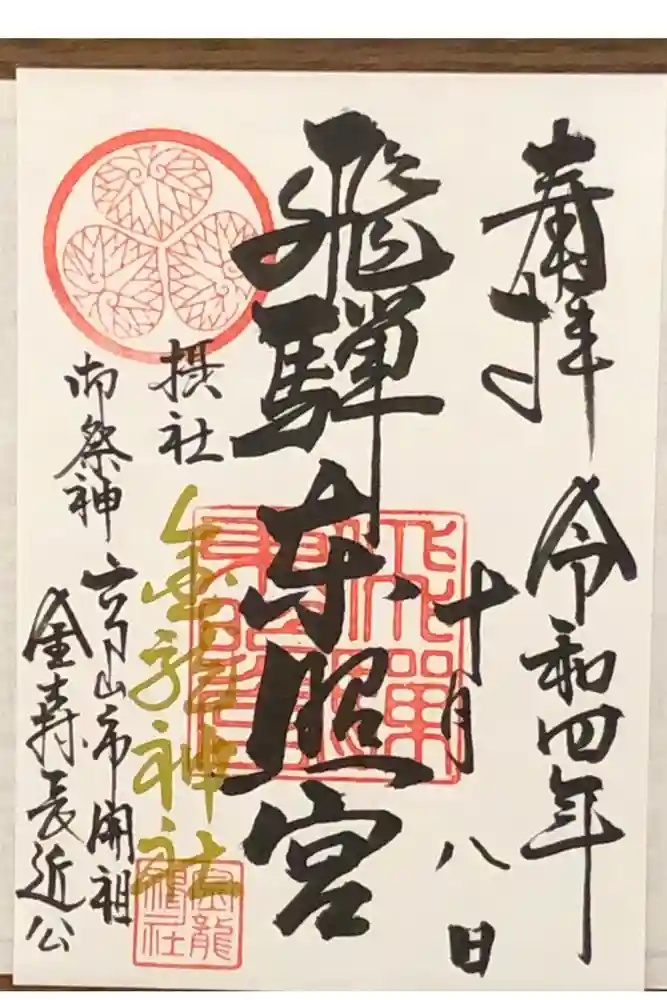 奉拝
令和四年
十月
八日
飛騨東照宮
飛騨東照宮
摂社
金龍神社
金龍神社
御祭神
高山市開祖
金森長近公